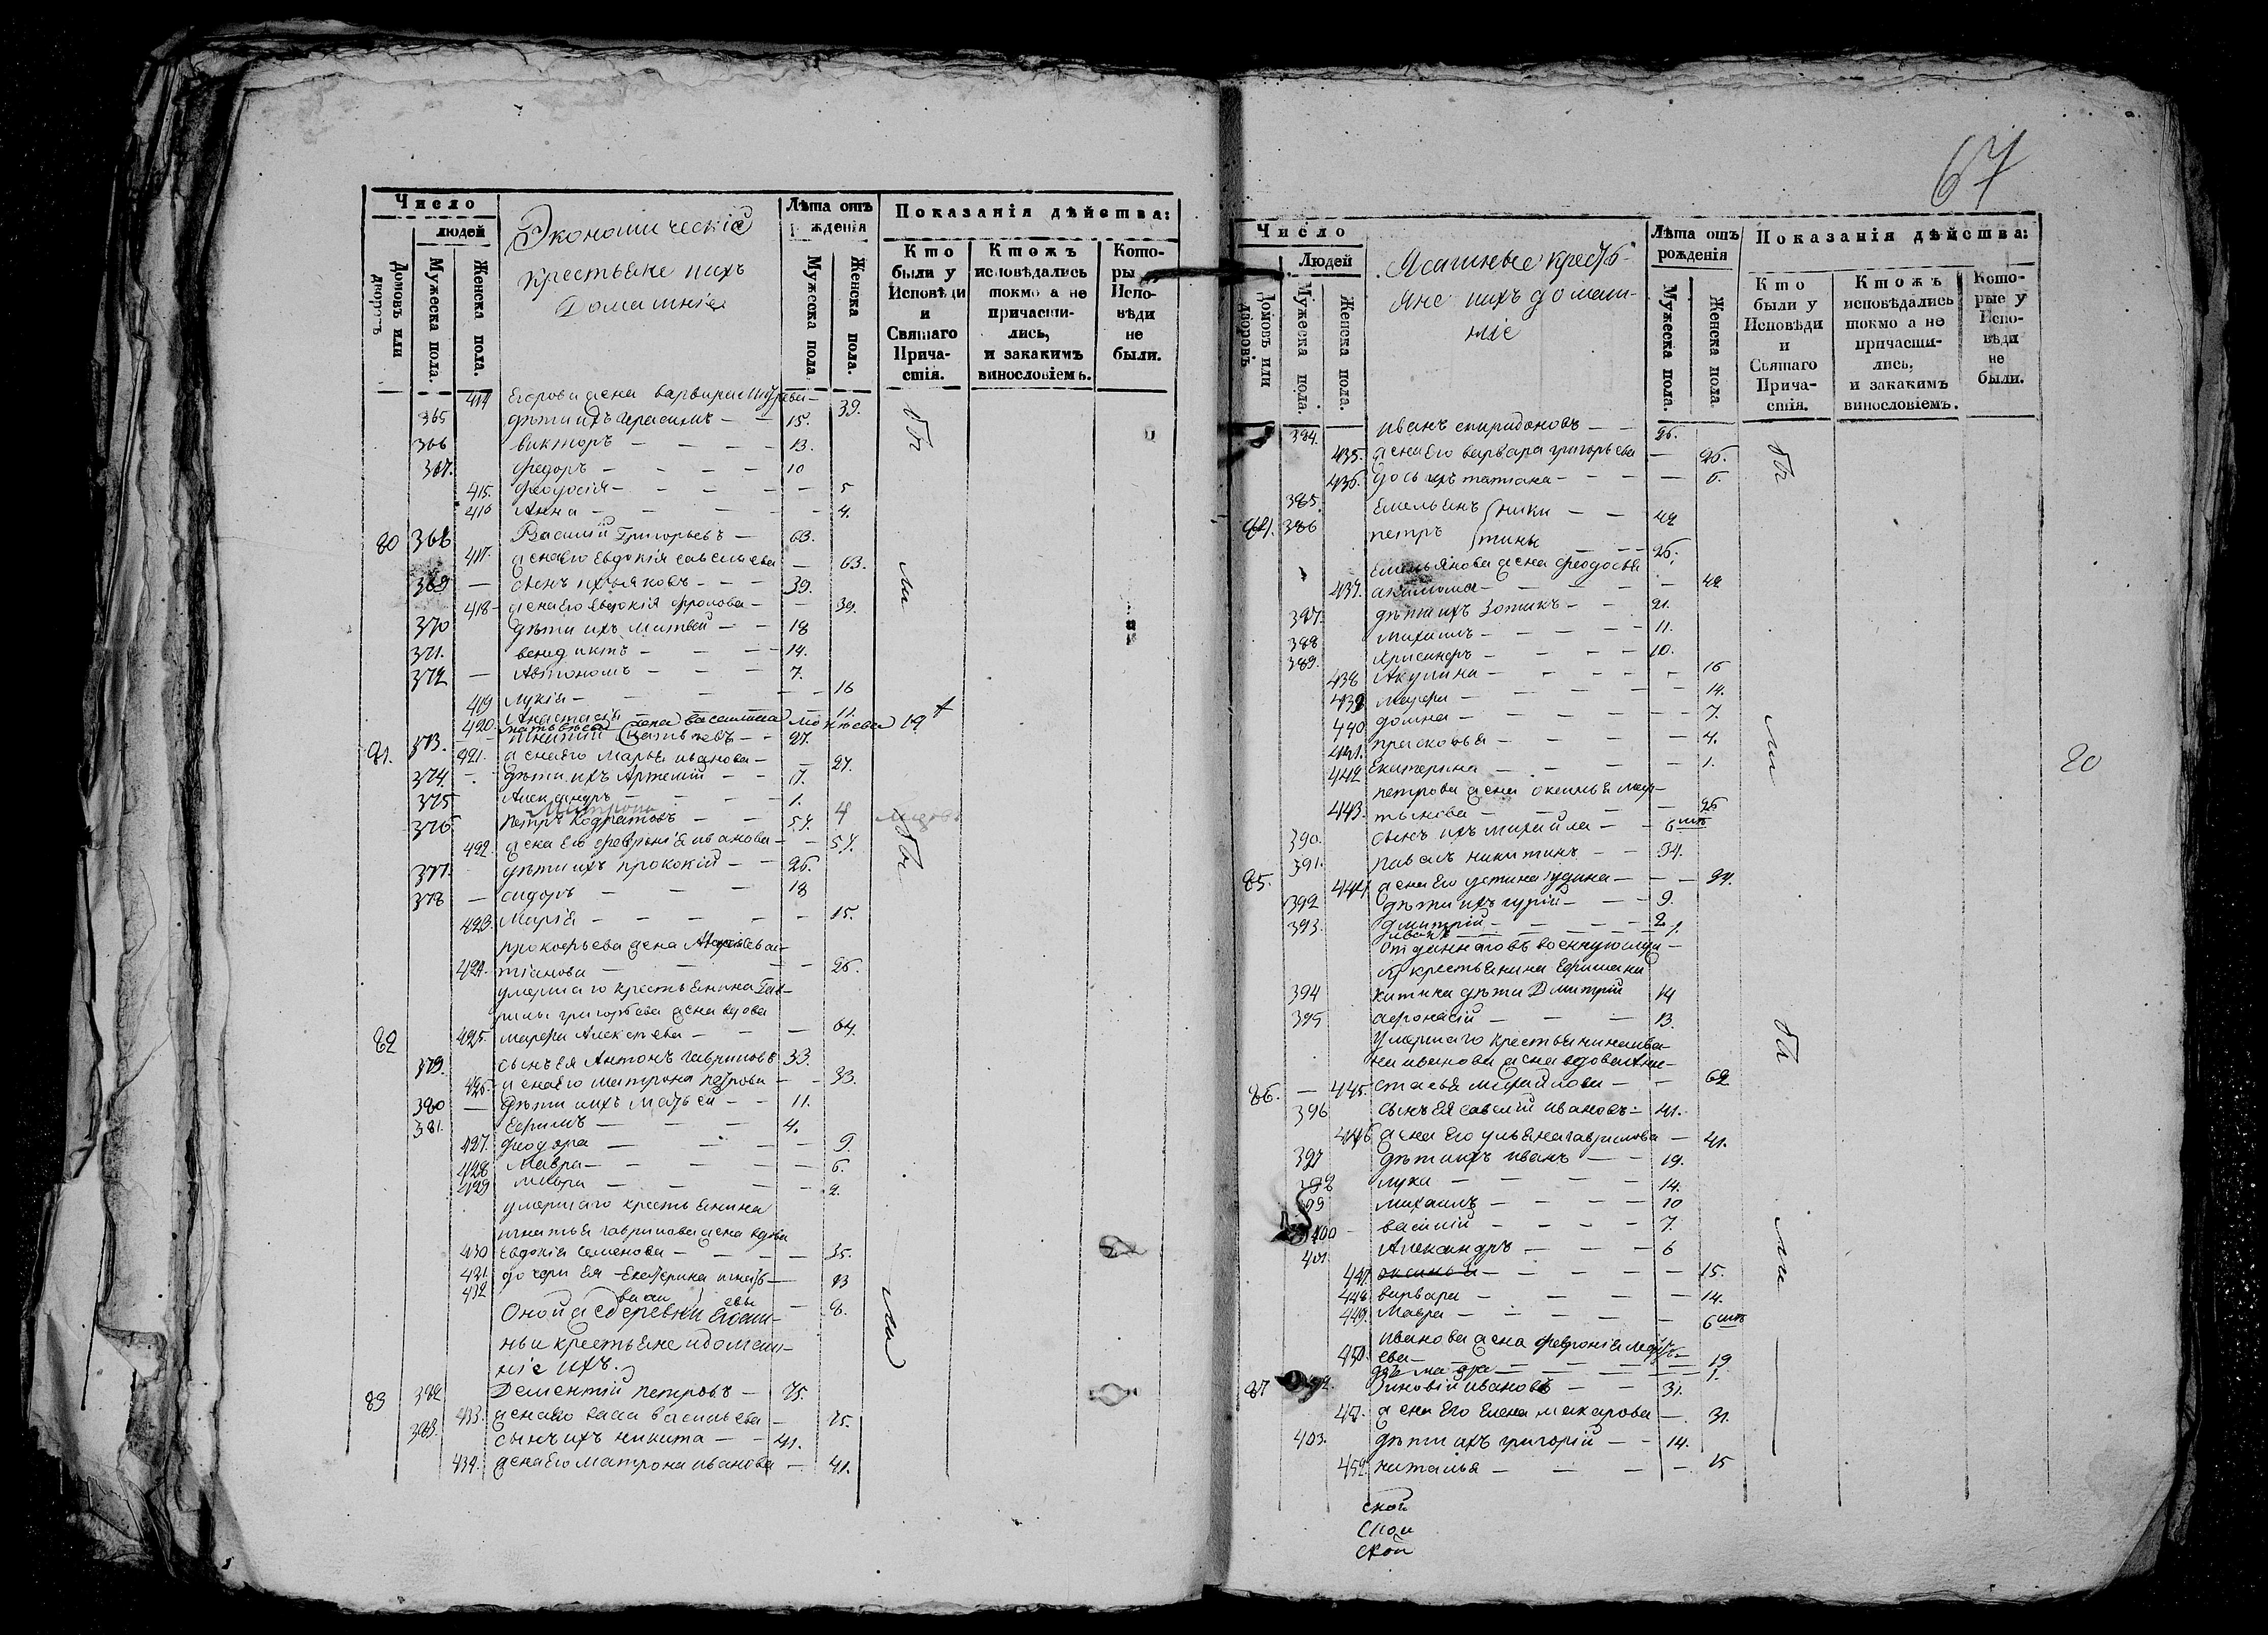 Число
людей
Домовъ или дворовъ
Мужеска пола.
Женска пола.
Экономическіе
крестьяне и ихъ
Домашніе
Лѣта отъ
рожденія
Мужеска пола.
Женска пола.
Показанія дѣйства:
Кто были у Исповѣди и Святаго Прича-стія.
Ктожъ исповѣдались токмо а не причасти-лись, и закакимъ винословіемъ.
Кото-ры Испо-вѣди не были.
414 Егорова жена варвара 39.
365 дѣти ихъ Герасимъ - - 15.
366 викторъ - - - 13.
367. Федоръ - - - - 10
415. Феодосія - - - - - 5
416 Анна - - - - 4.
80 368 Василій Григорьевъ - 63.
417. жена его Евдокія савельева - 63.
369 - сынъ ихъ яковъ - - - 39.
418 - жена его Евдокія Фролова - - 39.
370 дѣти ихъ матвей - - 18
371. венедиктъ - - - 14.
372 - Автономъ - - - 7.
419 Лукія - - - - - 16
420. Анастасія - - - - 11.
матвѣева жена василиса 19 +
81. 373. - 27.
421. жена его Марья иванова - - 27.
374. - дѣти ихъ Артемій - - 7.
375 Александръ - - - 1.
Матрона 4
376 петръ Кодратовъ - - 57.
422. жена его Февронія иванова - - 57.
377. дѣти ихъ прокофій - - 26.
378 - сидоръ - - - 18
423. Марія - - - - - 15.
прокофьева жена
424. - - - - 26.
умершаго крестьянина Гав-
рилы григорьева жена вдова
82 425. марфа Алексѣева - - - 64.
379. сынъ Ея Антонъ гавриловъ 33.
426. жена его матрона петрова - - 33.
380 - дѣти ихъ Матвей - - 11.
381. Ефимъ - - - 4.
427. феодора - - - - 9.
428 Мавра - - - - - 6.
429 - - - - 2.
умершаго крестьянина
игнатья гаврилова жена вдова
430 Евдокія семенова - - - - 35.
431. дочери Ея Екатерина игнать- - 13
432 евы - 8.
Оной же деревни Ясаш-
ныи крестьяне и домаш-
ніе ихъ.
83 382 Дементій петровъ - 75.
433. жена его васильева - 75.
383. сынъ ихъ никита - - 41.
434. жена его матрона иванова - 41.
67
Число
Людей
Домовъ или дворовъ
Мужеска пола.
Женска пола.
Ясашные кресть-
яне и ихъ домаш-
ніе
Лѣта отъ
рожденія
Мужеска пола.
Женска пола.
Показанія дѣйства:
Кто были у Исповѣди и Святаго Прича-стія.
Ктожъ исповѣдались токмо а не причасти-лись, и закакимъ винословіемъ.
Кото-рые у Испо-вѣди не были.
384. иванъ спиридоновъ - - 26.
435. жена его варвара григорьева - 26.
436. дочь ихъ татиана - - - - 6.
385. Емельянъ ники - - 42
84. 386 петръ тины - - - 26.
Емельянова жена феодосья
437. акимова - - - - - 42
387. дѣти ихъ Зотикъ - - 21.
388 Михаилъ - - - - 11.
389. - - - 10.
438 Акулина - - - - - 16
439 марфа - - - - - - 14.
440 домна - - - - - 7.
441. прасковья - - - - - 4.
442 Екатерина - - - - - 1.
петрова жена оксинья мар-
443. тынова - - - - - 26
390. сынъ ихъ михайла - - 6 мѣс
391. павелъ никитинъ - - 34.
85. 444. жена его устина - - - 34.
392 дѣти ихъ гурій - - - 9.
393. Дмитрій - - - - 2
иванъ - - - - - 1.
отданнаго въ военную служ-
бу крестьянина Ефима ни
394 китина дѣти Дмитрій 14
395 афонасій - - - 13.
умершаго крестьянина ива-
на иванова жена вдова Ана-
86. - 445. стасья михайлова - - 62
396 сынъ Ея савелій ивановъ - 41.
446 жена его ульяна гаврилова - 41.
397 дѣти ихъ иванъ - - 19.
398 лука - - - - 14.
399 михаилъ - - - - 10
400 - василій - - - - 7.
401. Александръ - - - 6
447. оксинья - - - - - 15.
448. варвара - - - - - 14.
449. Мавра - - - - - 6 мѣс
иванова жена февронія
450. ева - - - - - 19
- - - - 1.
87 402. Зиновій ивановъ - - 31.
451. жена его Елена макарова - 31.
403. дѣти ихъ григорій - - 14.
452. наталья - - - - - 15
20
ской
ской
ской
бы
ли
бы
ли
бы
ли
бы
ли